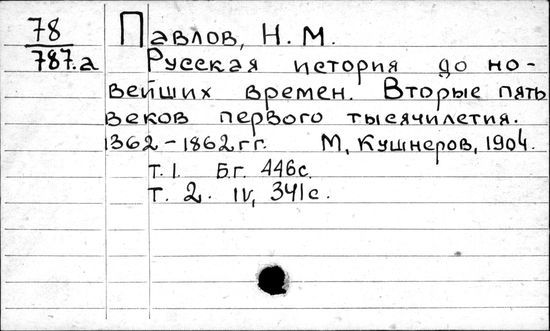 78
787.а
Павлов, Н. М.
Русская история до но-
вейших времен. Вторые пять
веков первого тысячилетия.
1362-1862 гг. М, Кушнеров, 1904.
Т. 1. Б.г. 446с.
Т. 2. IV, 341с.